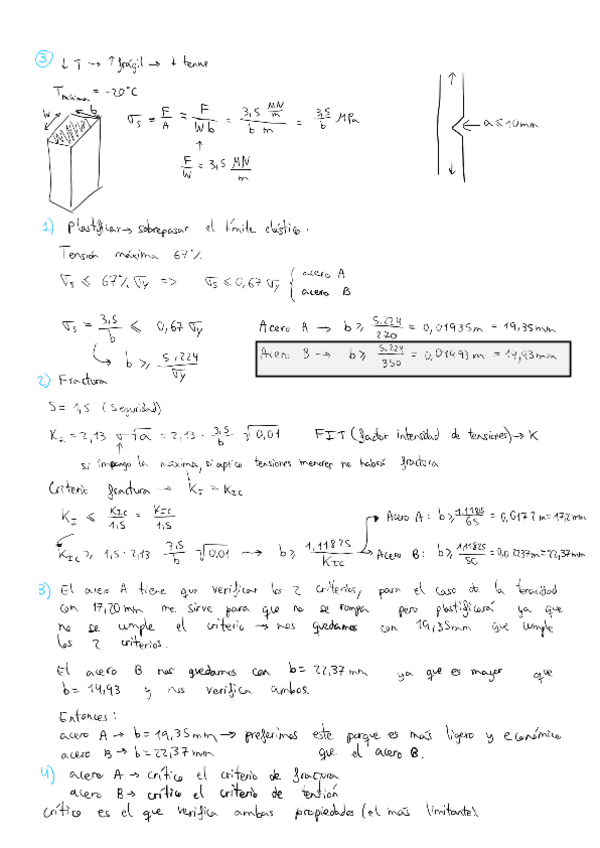 ③ ↓T → ↑ frágil → ↓ tenaz
T mínima = -20°C
W b
σs = F/A = F/(W b) = (3,5 MN/m)/(b m) = 3,5/b MPa
↑
F/W = 3,5 MN/m
a ≤ 10mm
1) Plastificar → sobrepasar el límite elástico.
Tensión máxima 67%
σs ≤ 67% σy => σs ≤ 0,67 σy { acero A
acero B
σs = 3,5/b ≤ 0,67 σy
b ≥ 5,224/σy
Acero A → b ≥ 5.224/270 = 0,01935m = 19,35mm
Acero B → b ≥ 5.224/350 = 0,01493m = 14,93mm
2) Fractura
S = 1,5 (Seguridad)
K_I = 2,13 σ √a = 2,13 · 3,5/b √0,01 FIT (factor intensidad de tensiones) → K
si impongo la máxima, si aplico tensiones menores no habrá fractura
Criterio fractura → K_I = K_IC
K_I ≤ K_IC/1,5 = K_IC/1,5
K_IC ≥ 1,5 · 2,13 3,5/b √0,01 → b ≥ 1,11825/K_IC
Acero A: b ≥ 1,11825/65 = 0,0172m = 17,2mm
Acero B: b ≥ 1,11825/50 = 0,02237m = 22,37mm
3) El acero A tiene que verificar los 2 criterios, para el caso de la tenacidad
con 17,20mm me sirve para que no se rompa pero plastificará ya que
no se cumple el criterio → nos quedamos con 19,35mm que cumple
los 2 criterios.
El acero B nos quedamos con b = 22,37mm ya que es mayor que
b = 14,93 y nos verifica ambos.
Entonces:
acero A → b = 19,35mm → preferimos este porque es más ligero y económico
acero B → b = 22,37mm que el acero B.
4) acero A → crítico el criterio de fractura
acero B → crítico el criterio de tensión
crítico es el que verifica ambas propiedades (el más limitante)